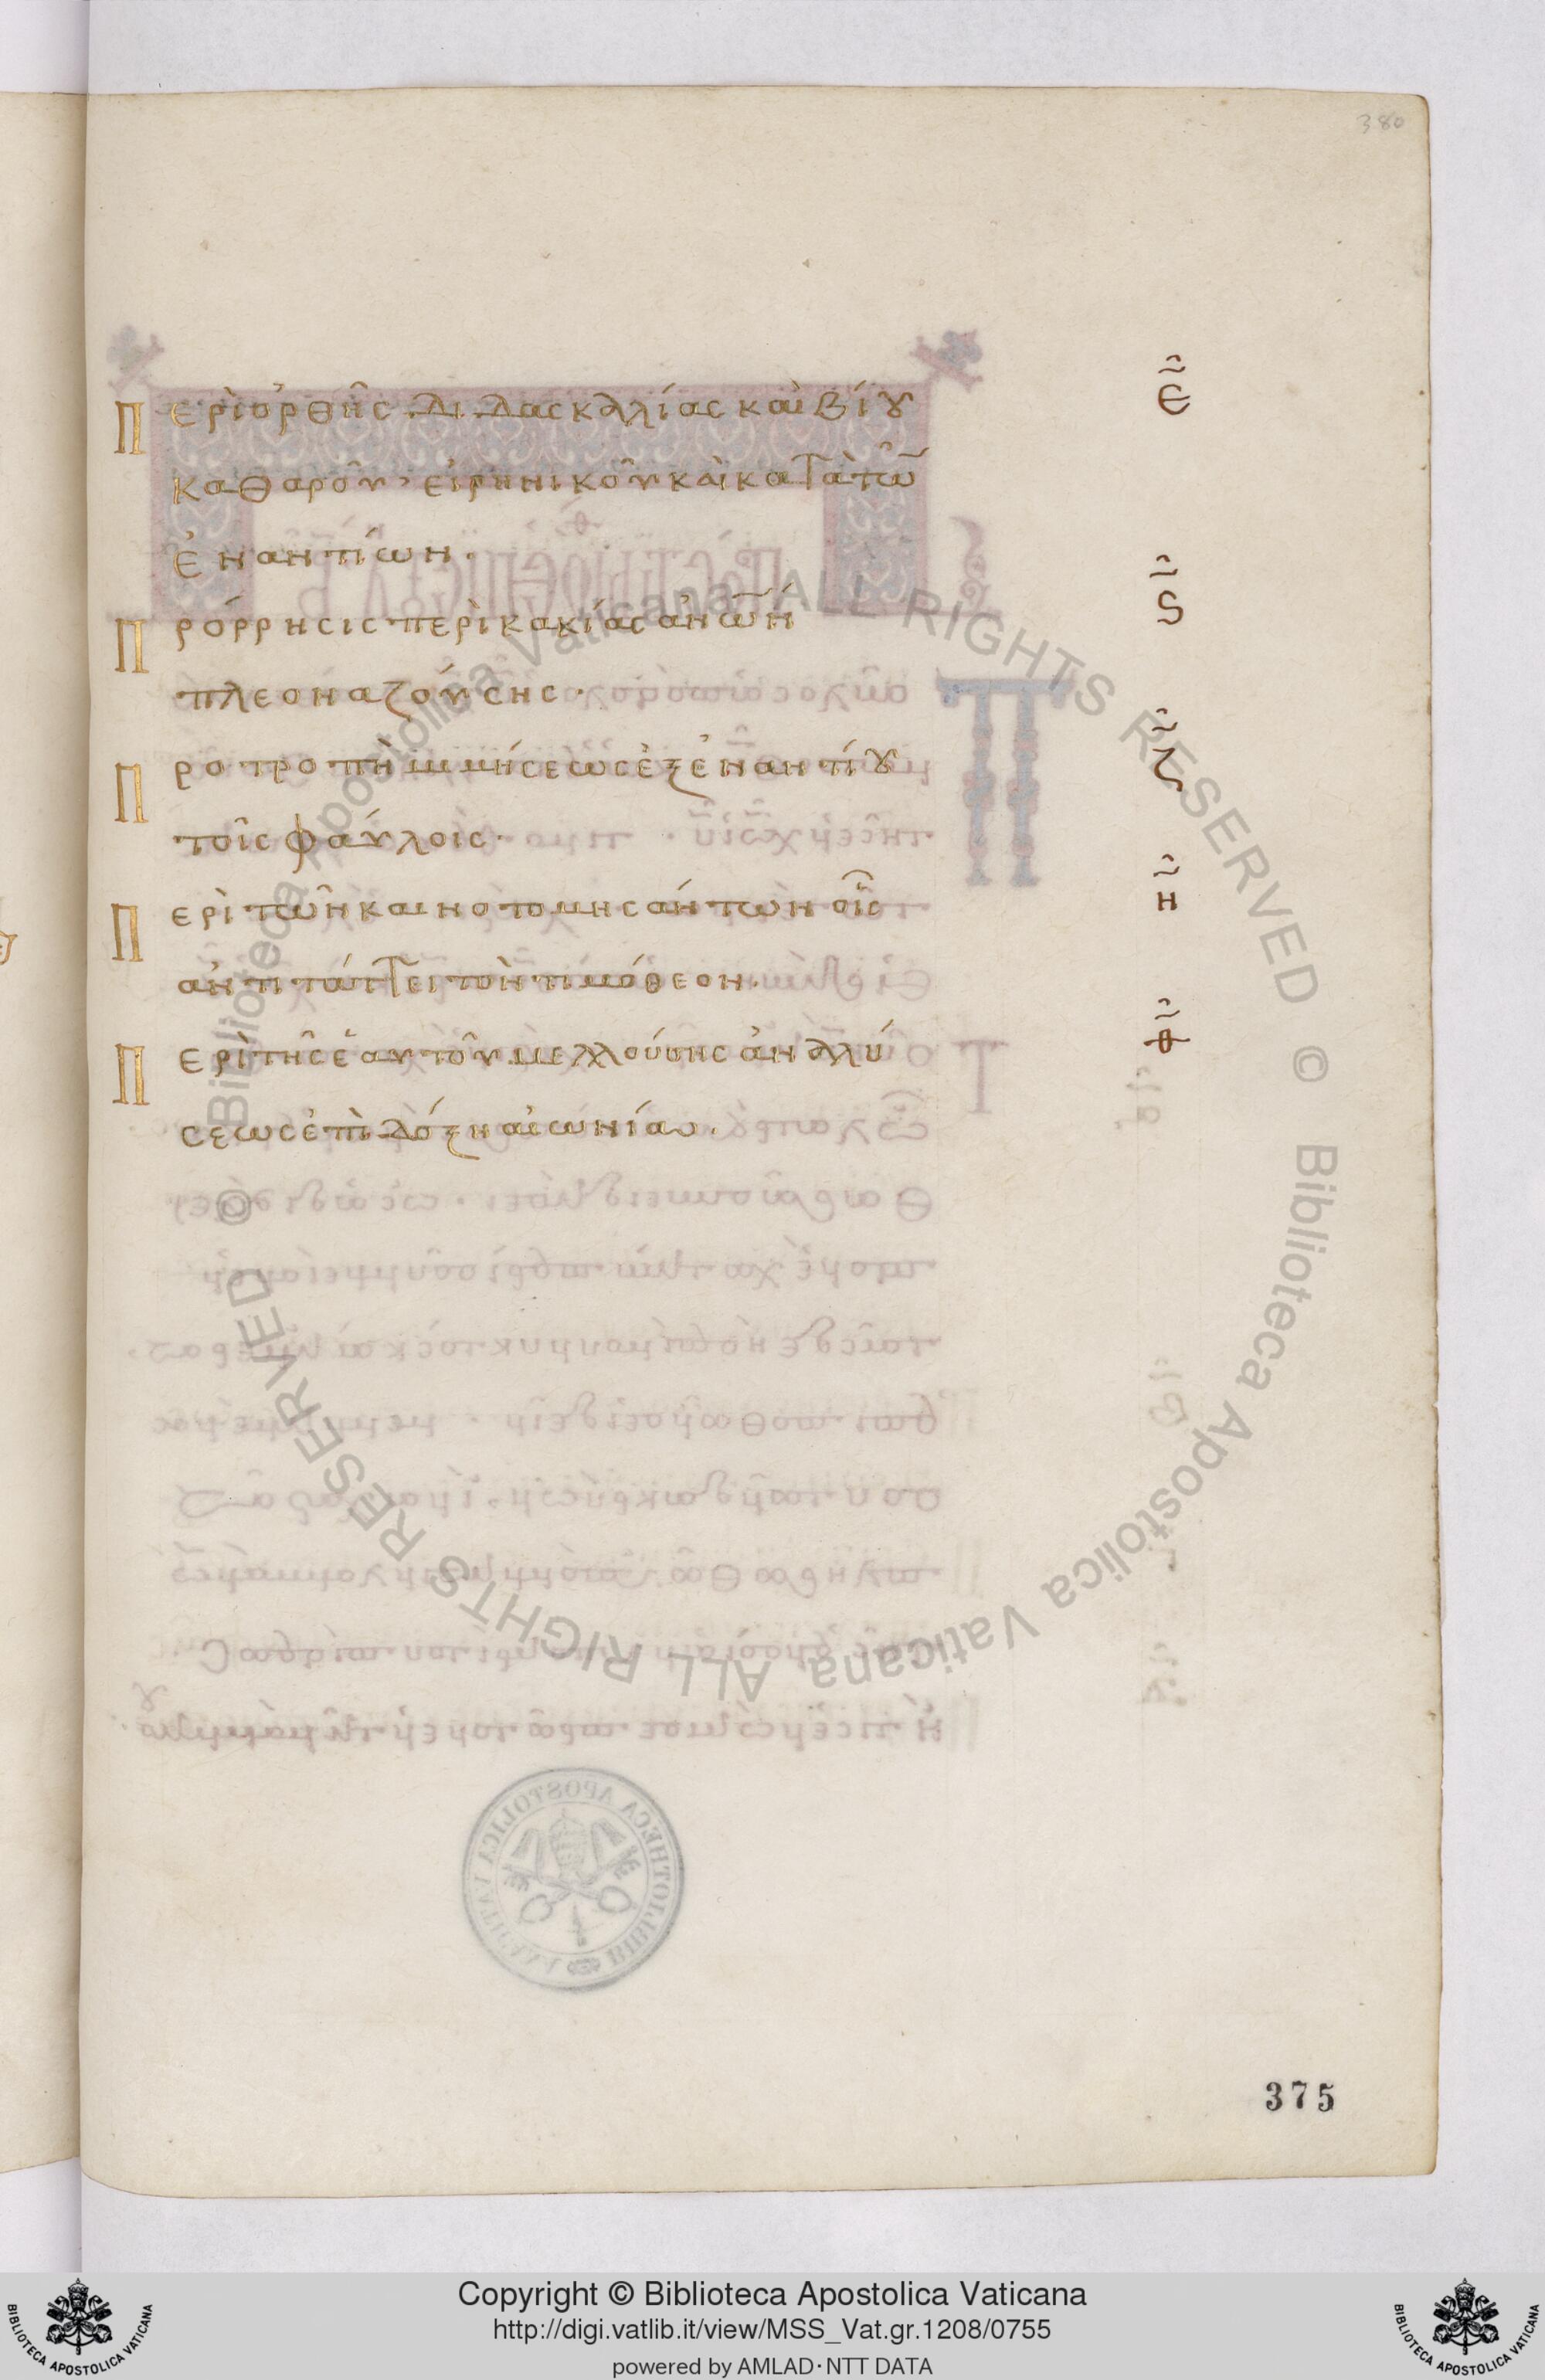 380
Περὶ ὀρθῆς διδασκαλίας καὶ βίου ε
καθαροῦ· εἰρηνικοῦ καὶ κατὰ τῶ̅
ἐναντίων·
Πρόρρησις περὶ κακίας ἀν̅ω̅ν ς
πλεοναζούσης·
Προτροπὴ μιμήσεως ἐξ ἐναντίου ζ
τοῖς φαύλοις·
Περὶ τῶν καινοτομησάντων οἷς η
ἀντιτάττει τὸν τιμόθεον·
Περὶ τῆς ἑαυτοῦ μελλούσης ἀναλύ θ
σεως ἐπὶ δόξη αἰωνίαι·
375
Copyright © Biblioteca Apostolica Vaticana
http://digi.vatlib.it/view/MSS_Vat.gr.1208/0755
powered by AMLAD·NTT DATA
BIBLIOTECA APOSTOLICA VATICANA
BIBLIOTECA APOSTOLICA VATICANA
© Biblioteca Apostolica Vaticana ALL RIGHTS RESERVED © Biblioteca Apostolica Vaticana ALL RIGHTS RESERVED